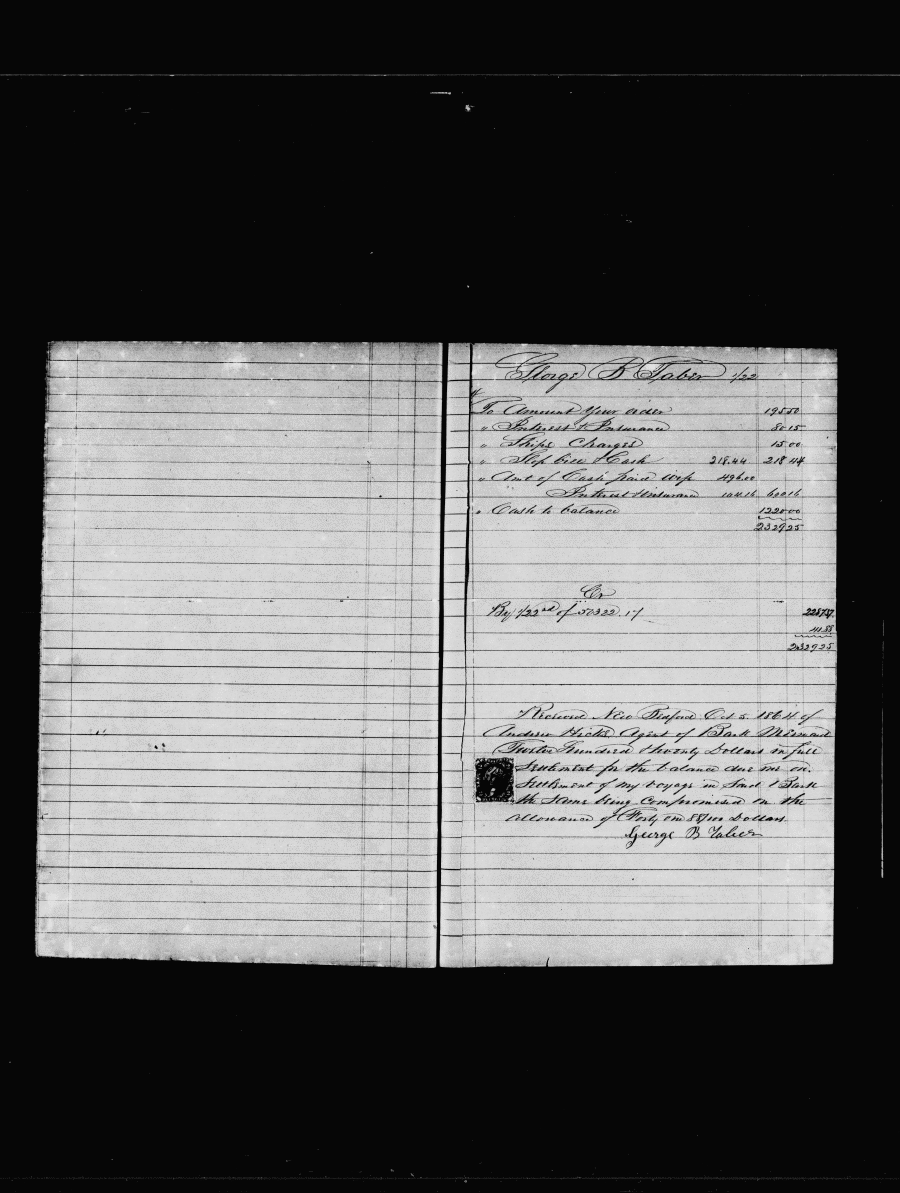 George B Taber 1/22
To Amount Your order 195.50
" Interest & Insurance 80.15
" Ships Charges 15.00
" Slop bill & Cash 218.44 218 44
" Amt of Cash paid 496.00
Interest & Insurance 104.16 600 16
" Cash to balance 1220.00
2329 25
Cr
By 1/22nd of 50322.17 2287.37
41.88
2329 25
Received New Bedford Oct 5. 1864 of
Andrew Hicks Agent of Bark Mermaid
Twelve Hundred & twenty Dollars in full
Settlement for the balance due me on
Settlement of my Voyage in Said Bark
the Same being Compromised on the
allowance of Forty one 88/100 Dollars
George B Taber